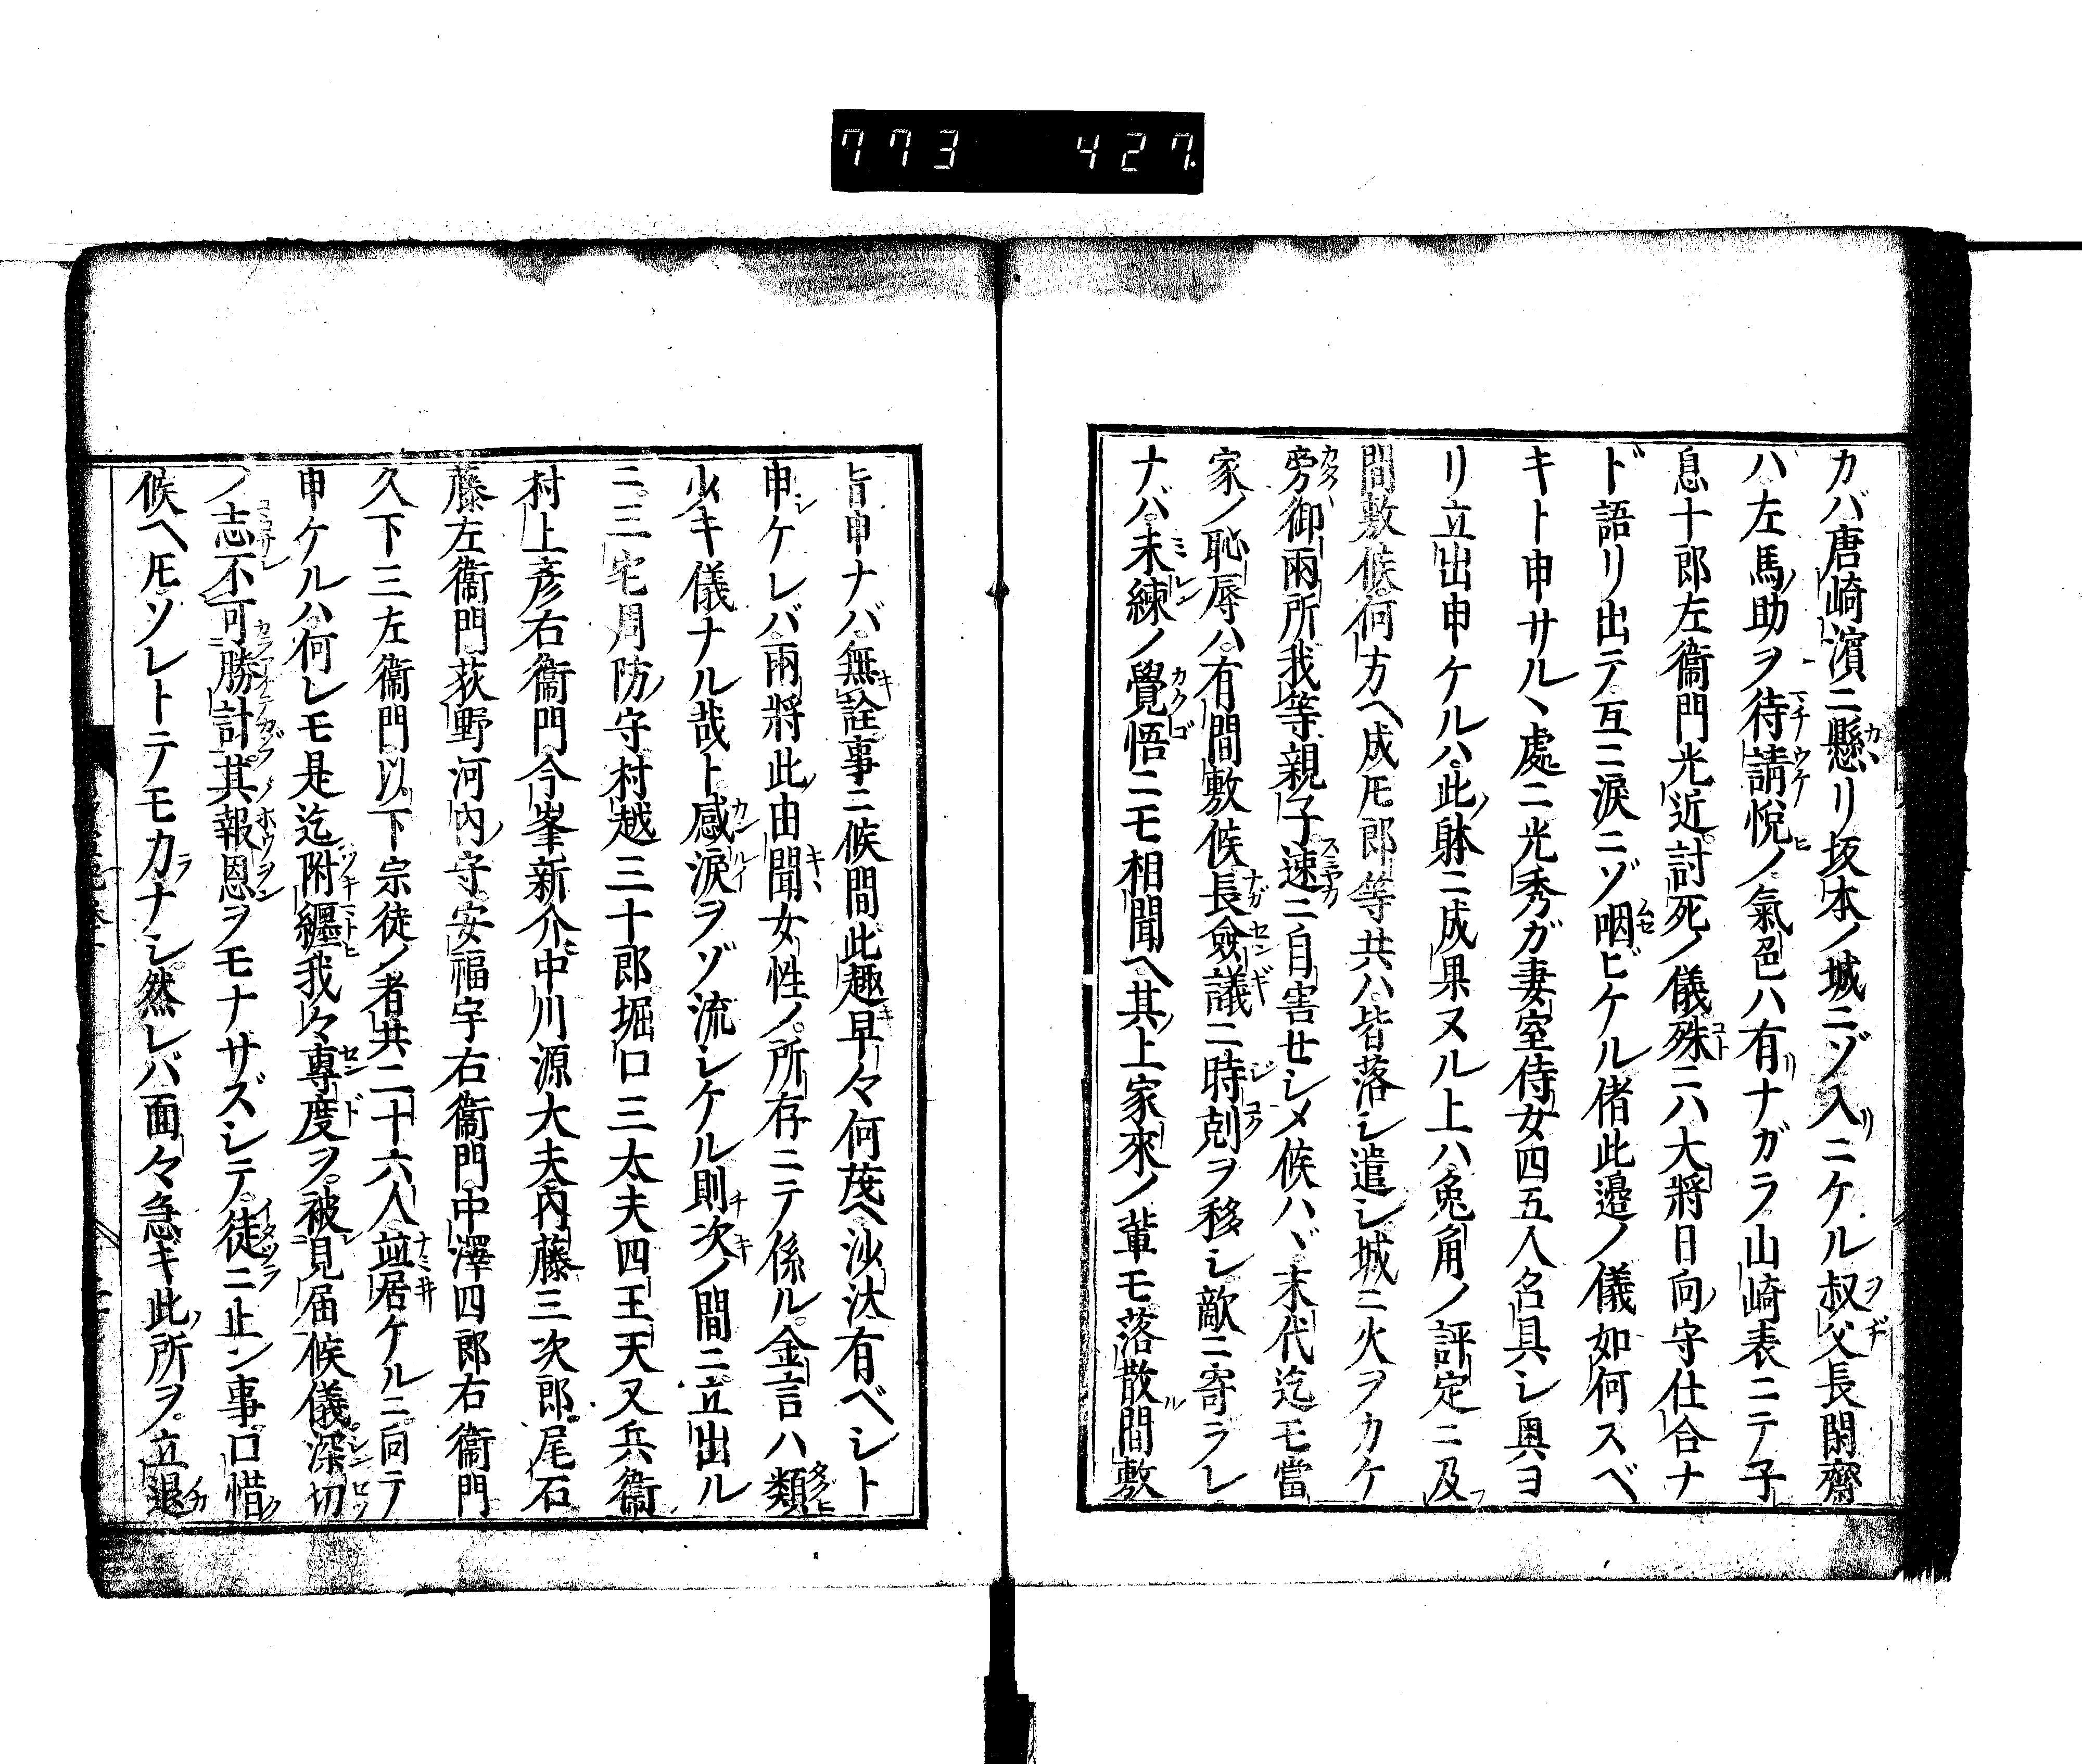 773 427
カバ唐崎濱ニ懸リ坂本ノ城ニゾ入ニケル叔父長閑齋
バ左馬助ヲ待請悅ノ氣色ハ有ナガラ山崎表ニテ子
息十郎左衞門光近討死ノ儀殊ニハ大將日向守仕合ナ
ド語リ出テ互ニ淚ニゾ咽ビケル偖此邉ノ儀如何スベ
キト申サルヽ處ニ光秀ガ妻室侍女四五人召具シ奥ヨ
リ立出申ケルハ此躰ニ成果ヌル上ハ兔角ノ評定ニ及
間敷候何方ヘ成𪜈郎等共ハ皆落シ遣シ城ニ火ヲカケ
旁御兩所我等親子速ニ自害セシメ候ハヾ末代迄モ當
家ノ恥辱ハ有間敷候長僉議ニ時剋ヲ移シ敵ニ寄ラレ
ナバ未練ノ覺悟ニモ相聞ヘ其上家來ノ輩モ落散間敷
旨申ナバ無詮事ニ候間此趣早々何茂ヘ沙汰有ベシト
申ケレバ兩將此由聞女性ノ所存ニテ係ル金言ハ類
少キ儀ナル哉ト感淚ヲゾ流シケル則次ノ間ニ立出ル
ニ三宅周防守村越三十郎堀口三太夫四王天又兵衞
村上彥右衞門今峯新介中川源大夫內藤三次郎尾石
藤左衞門荻野河內守安福宇右衞門中澤四郎右衞門
久下三左衞門以下宗徒ノ者共二十六人竝居ケルニ向テ
申ケルハ何レモ是迄附纏我々專度ヲ被見届候儀深切
ノ志不可勝計其報恩ヲモナサズシテ徒ニ止ン事口惜
候ヘ𪜈ソレトテモカナシ然レバ面々急ギ此所ヲ立退